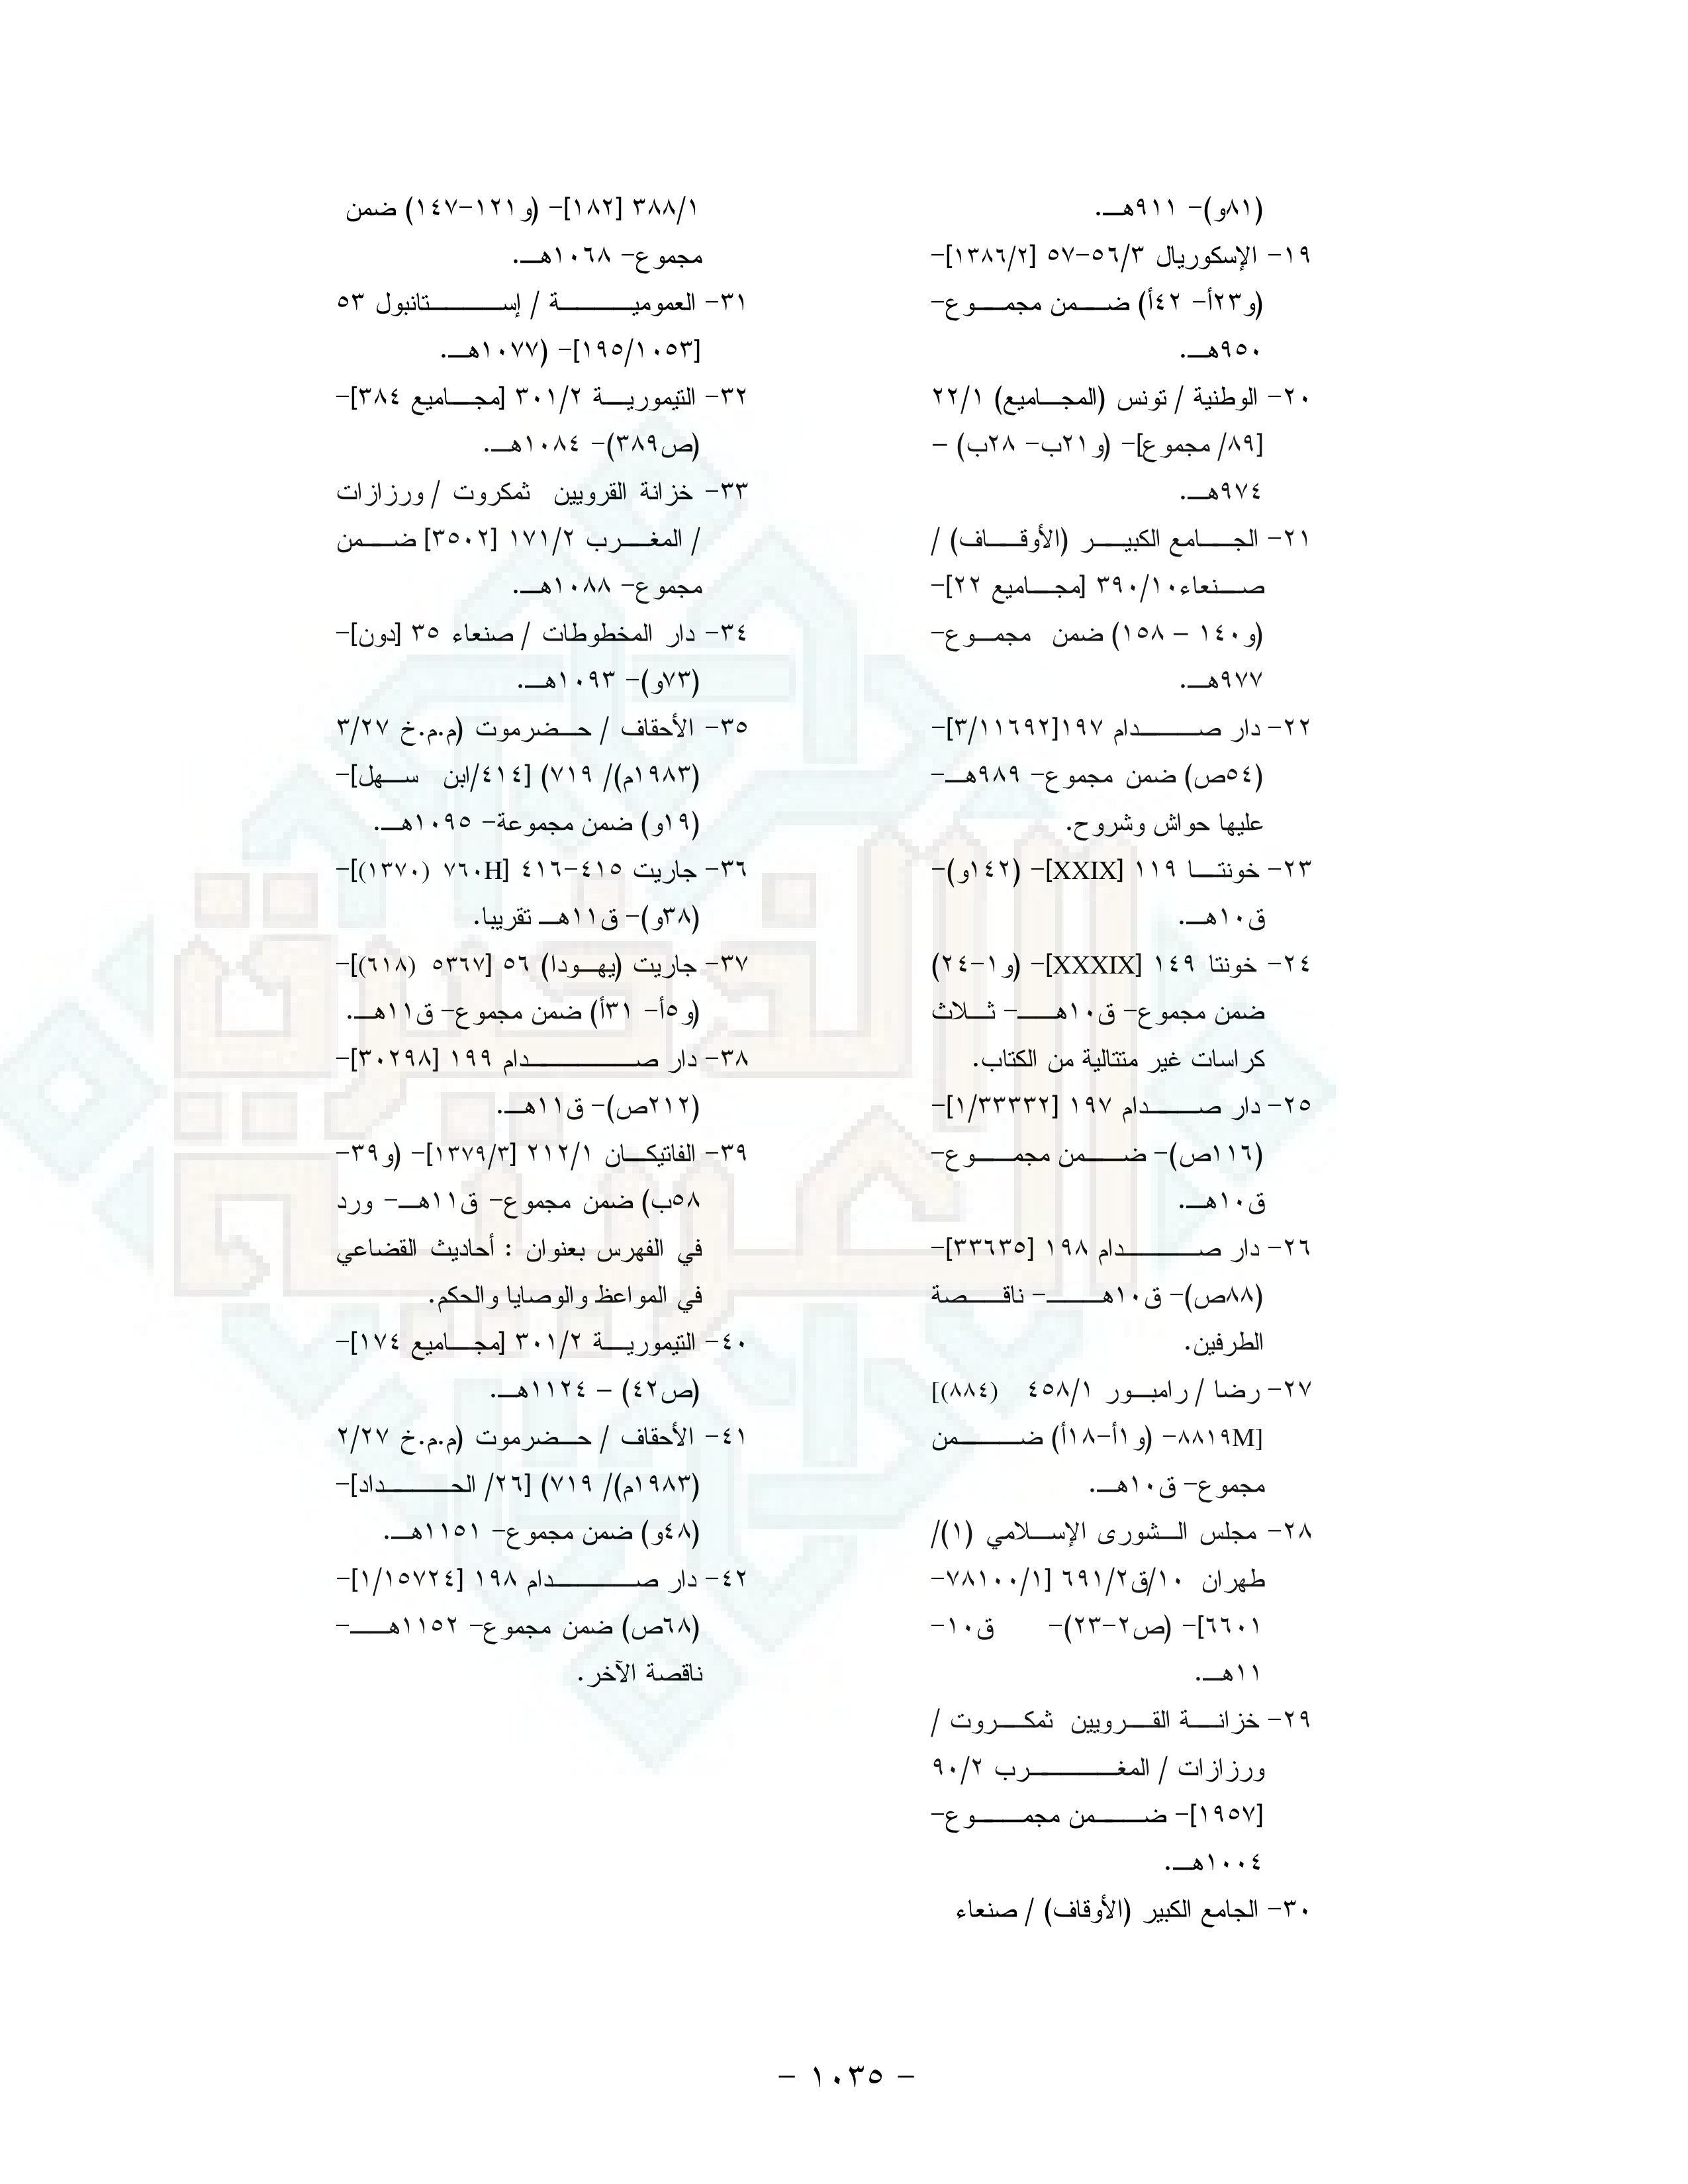 (٨١و)- ٩١١هـ.
١٩- الإسكوريال ٥٦/٣-٥٧ [١٣٨٦/٢]-
(و٢٣أ- ٤٢أ) ضمن مجموع-
٩٥٠هـ.
٢٠- الوطنية / تونس (المجاميع) ٢٢/١
[٨٩/ مجموع]- (و٢١ب- ٢٨ب) –
٩٧٤هـ.
٢١- الجامع الكبير (الأوقاف) /
صنعاء٣٩٠/١٠ [مجاميع ٢٢]-
(و١٤٠ – ١٥٨) ضمن مجموع-
٩٧٧هـ.
٢٢- دار صدام ١٩٧[٣/١١٦٩٢]-
(٥٤ص) ضمن مجموع- ٩٨٩هـ-
عليها حواش وشروح.
٢٣- خونتا ١١٩ [XXIX]- (١٤٢و)-
ق١٠هـ.
٢٤- خونتا ١٤٩ [XXXIX]- (و١-٢٤)
ضمن مجموع- ق١٠هـ- ثلاث
كراسات غير متتالية من الكتاب.
٢٥- دار صدام ١٩٧ [١/٣٣٣٣٢]-
(١١٦ص)- ضمن مجموع-
ق١٠هـ.
٢٦- دار صدام ١٩٨ [٣٣٦٣٥]-
(٨٨ص)- ق١٠هـ- ناقصة
الطرفين.
٢٧- رضا / رامبور ٤٥٨/١ [(٨٨٤)
٨٨١٩M]- (و١أ-١٨أ) ضمن
مجموع- ق١٠هـ.
٢٨- مجلس الشورى الإسلامي (١)/
طهران ١٠/ق٦٩١/٢ [٧٨١٠٠/١-
٦٦٠١]- (ص٢-٢٣)- ق١٠-
١١هـ.
٢٩- خزانة القرويين ثمكروت /
ورزازات / المغرب ٩٠/٢
[١٩٥٧]- ضمن مجموع-
١٠٠٤هـ.
٣٠- الجامع الكبير (الأوقاف) / صنعاء
٣٨٨/١ [١٨٢]- (و١٢١-١٤٧) ضمن
مجموع- ١٠٦٨هـ.
٣١- العمومية / إستانبول ٥٣
[١٩٥/١٠٥٣]- (١٠٧٧هـ.
٣٢- التيمورية ٣٠١/٢ [مجاميع ٣٨٤]-
(ص٣٨٩)- ١٠٨٤هـ.
٣٣- خزانة القرويين ثمكروت / ورزازات
/ المغرب ١٧١/٢ [٣٥٠٢] ضمن
مجموع- ١٠٨٨هـ.
٣٤- دار المخطوطات / صنعاء ٣٥ [دون]-
(٧٣و)- ١٠٩٣هـ.
٣٥- الأحقاف / حضرموت (م.م.خ ٣/٢٧
(١٩٨٣م)/ ٧١٩) [٤١٤/ابن سهل]-
(١٩و) ضمن مجموعة- ١٠٩٥هـ.
٣٦- جاريت ٤١٥-٤١٦ [٧٦٠H (١٣٧٠)]-
(٣٨و)- ق١١هـ تقريبا.
٣٧- جاريت (يهودا) ٥٦ [٥٣٦٧ (٦١٨)]-
(و٥أ- ٣١أ) ضمن مجموع- ق١١هـ.
٣٨- دار صدام ١٩٩ [٣٠٢٩٨]-
(٢١٢ص)- ق١١هـ.
٣٩- الفاتيكان ٢١٢/١ [١٣٧٩/٣]- (و٣٩-
٥٨ب) ضمن مجموع- ق١١هـ- ورد
في الفهرس بعنوان : أحاديث القضاعي
في المواعظ والوصايا والحكم.
٤٠- التيمورية ٣٠١/٢ [مجاميع ١٧٤]-
(ص٤٢) – ١١٢٤هـ.
٤١- الأحقاف / حضرموت (م.م.خ ٢/٢٧
(١٩٨٣م)/ ٧١٩) [٢٦/ الحداد]-
(٤٨و) ضمن مجموع- ١١٥١هـ.
٤٢- دار صدام ١٩٨ [١/١٥٧٢٤]-
(٦٨ص) ضمن مجموع- ١١٥٢هـ-
ناقصة الآخر.
- ١٠٣٥ -